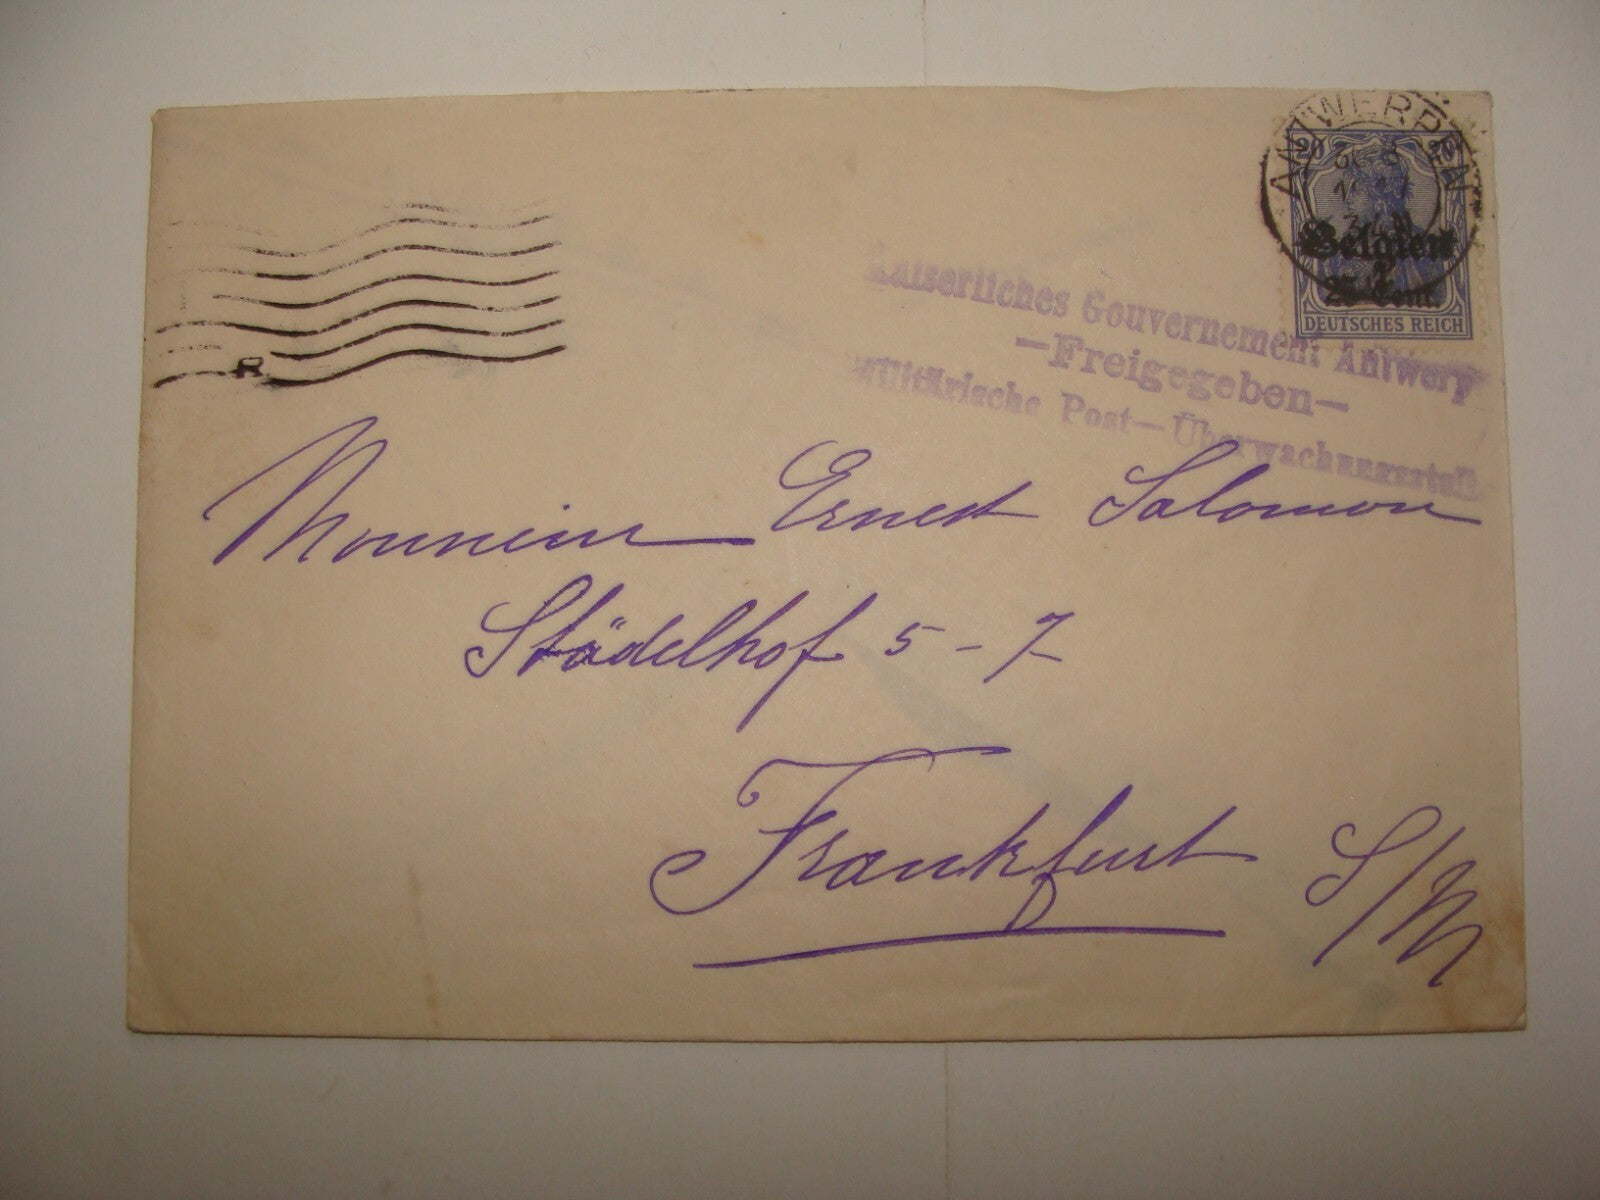 ANTWERPEN
20 20
Belgien
25 Cent.
DEUTSCHES REICH
Kaiserliches Gouvernement Antwerp
—Freigegeben—
Militärische Post—Überwachungsstelle
R
Monsieur Ernest Salomon
Städelhof 5-7
Frankfurt S/M